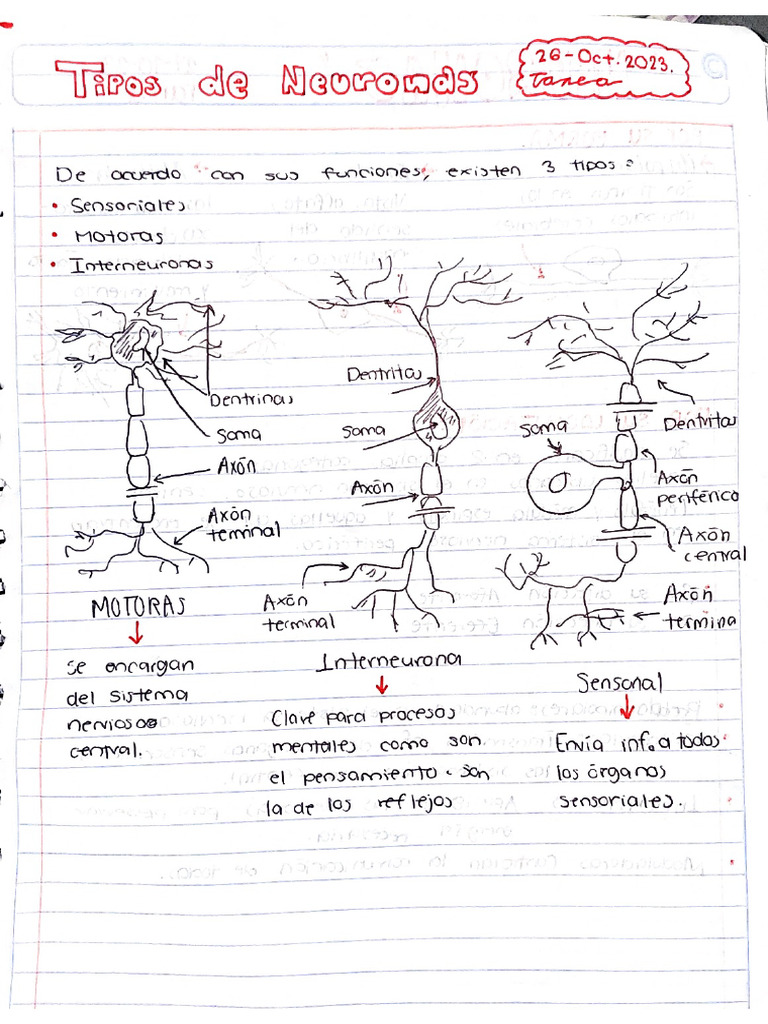 Tipos de Neuronas
26-Oct.2023.
tarea
De acuerdo con sus funciones, existen 3 tipos:
• Sensoriales
• Motoras
• Interneuronas
Dentrinas
Soma
Axón
Axón
teminal
MOTORAS
se encargan
del sistema
nervioso
central.
Dentritas
soma
Axón
Axón
terminal
Interneurona
Clave para procesos
mentales como son
el pensamiento. son
la de los reflejos
Dentritas
Soma
Axón
periférico
Axón
central
Axón
termina
Sensorial
Envía inf. a todos
los órganos
sensoriales.